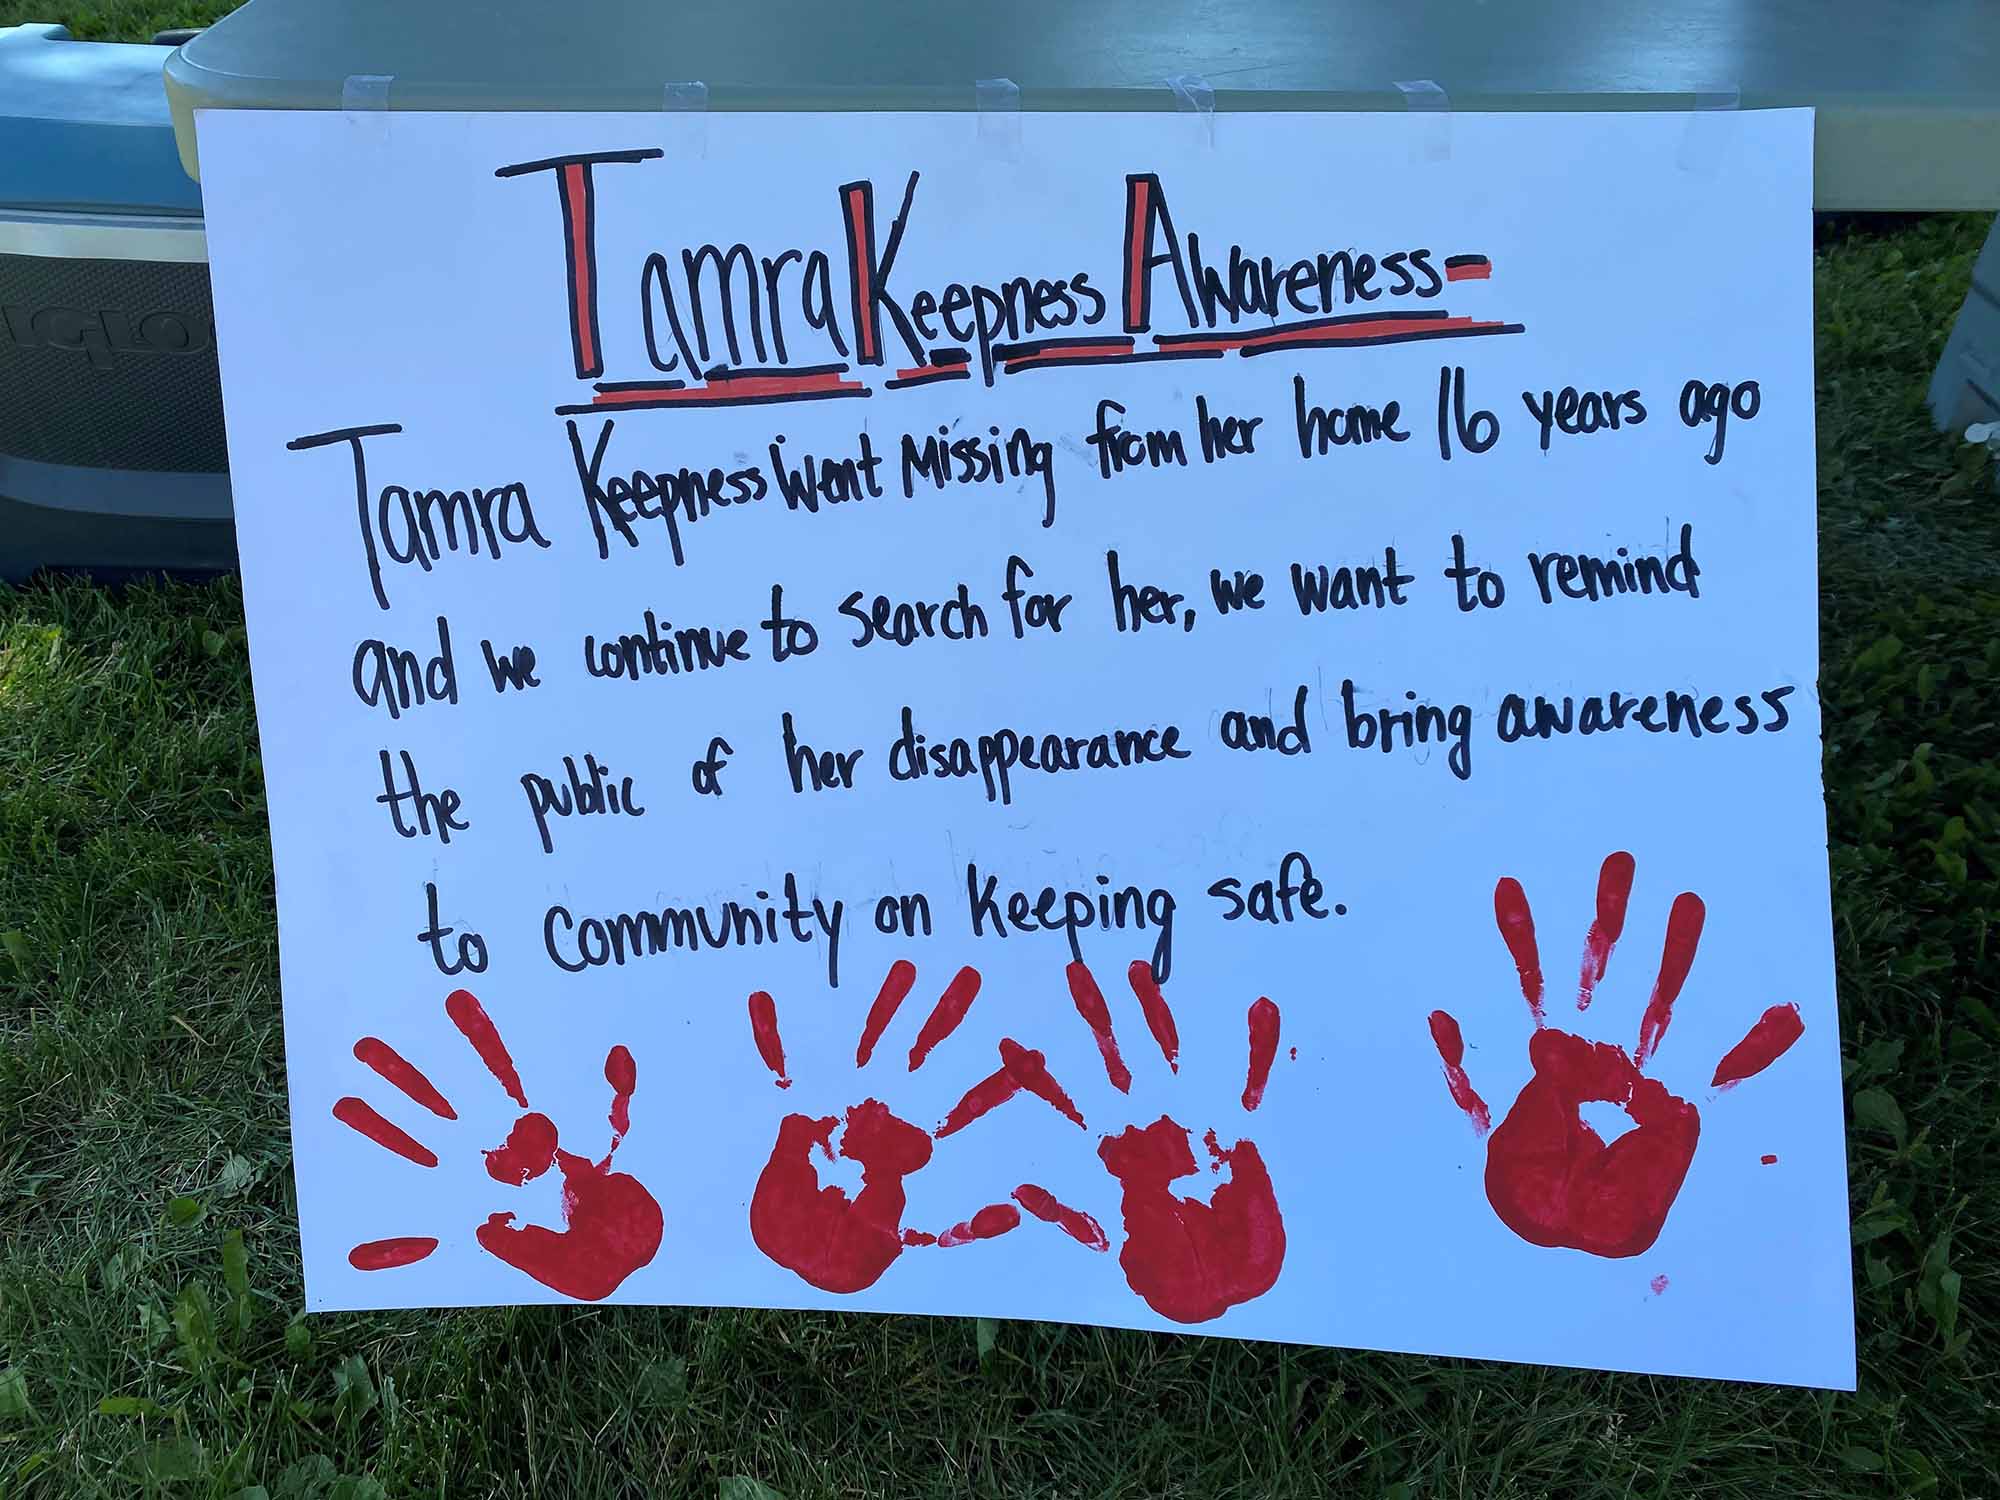 IGLOO
Tamra Keepness Awareness-
Tamra Keepness Went Missing from her home 16 years ago
and we continue to search for her, we want to remind
the public of her disappearance and bring awareness
to community on keeping safe.